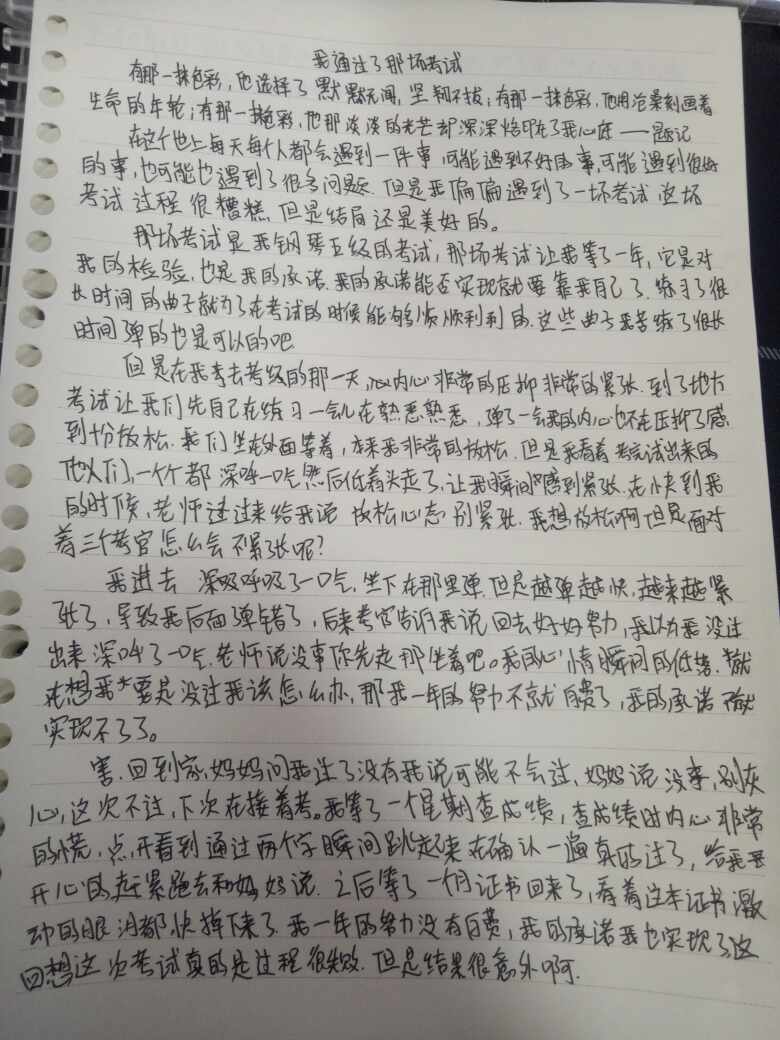 我通过了那场考试
有那一抹色彩,他选择了默默无闻,坚韧不拔;有那一抹色彩,他用沧桑刻画着
生命的年轮;有那一抹色彩,他那淡淡的光芒却深深烙印在了我心底——题记
在这个世上每天每个人都会遇到一件事,可能遇到不好的事,可能遇到很好
的事,也可能也遇到了很多问题 但是我偏偏遇到了一场考试 这场
考试过程很糟糕 但是结局还是美好的。
那场考试是我钢琴五级的考试,那场考试让我等了一年,它是对
我的检验,也是我的承诺.我的承诺能否实现就要靠我自己了.练习了很
长时间的曲子就为了在考试的时候能够顺顺利利的.这些曲子我苦练了很长
时间弹的也是可以的吧
但是在我考去考级的那一天,心内心非常的压抑非常的紧张.到了地方
考试让我们先自己在练习一会儿在熟悉熟悉,弹了一会我的内心也不在压抑了感
到十份放松.我们坐在外面等着,本来我非常的放松.但是我看着考完试出来的
他人们,一个个都深呼一口气然后低着头走了,让我瞬间感到紧张.在快到我
的时候,老师还过来给我说 放松心态 别紧张.我想放松啊但是面对
着三个考官怎么会不紧张呢?
我进去 深吸呼吸了一口气.坐下在那里弹.但是越弹越快,越来越紧
张了,导致我后面弹错了,后来考官告诉我说回去好好努力,我以为我没过
出来深呼了一口气.老师说没事你先走那坐着吧。我的心情瞬间的低落.就
在想我要是没过我该怎么办,那我一年的努力不就白费了,我的承诺就
实现不了了。
害.回到家,妈妈问我过了没有我说可能不会过,妈妈说没事,别灰
心,这次不过,下次在接着考。我等了一个星期查成绩,查成绩时内心非常
的慌,点开看到通过两个字瞬间跳起来在确认一遍真的过了,给我
开心的赶紧跑去和妈妈说.之后等了一个月证书回来了,看着这本证书激
动的眼泪都快掉下来了.我一年的努力没有白费,我的承诺我也实现了这
回想这次考试真的是过程很失败.但是结果很意外啊.